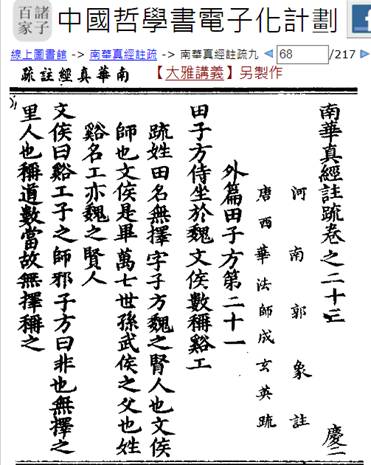 諸子百家 中國哲學書電子化計劃
線上圖書館 -> 南華真經註疏 -> 南華真經註疏九 68 /217
南華真經註疏 【大雅講義】另製作
南華真經註疏卷之二十三 慶二
河南郭象註
唐西華法師成玄英疏
外篇田子方第二十一
田子方侍坐於魏文侯數稱谿工
疏姓田名無擇字子方魏之賢人也文侯
師也文侯是畢萬七世孫武侯之父也姓
谿名工亦魏之賢人
文侯曰谿工子之師邪子方曰非也無擇之
里人也稱道數當故無擇稱之